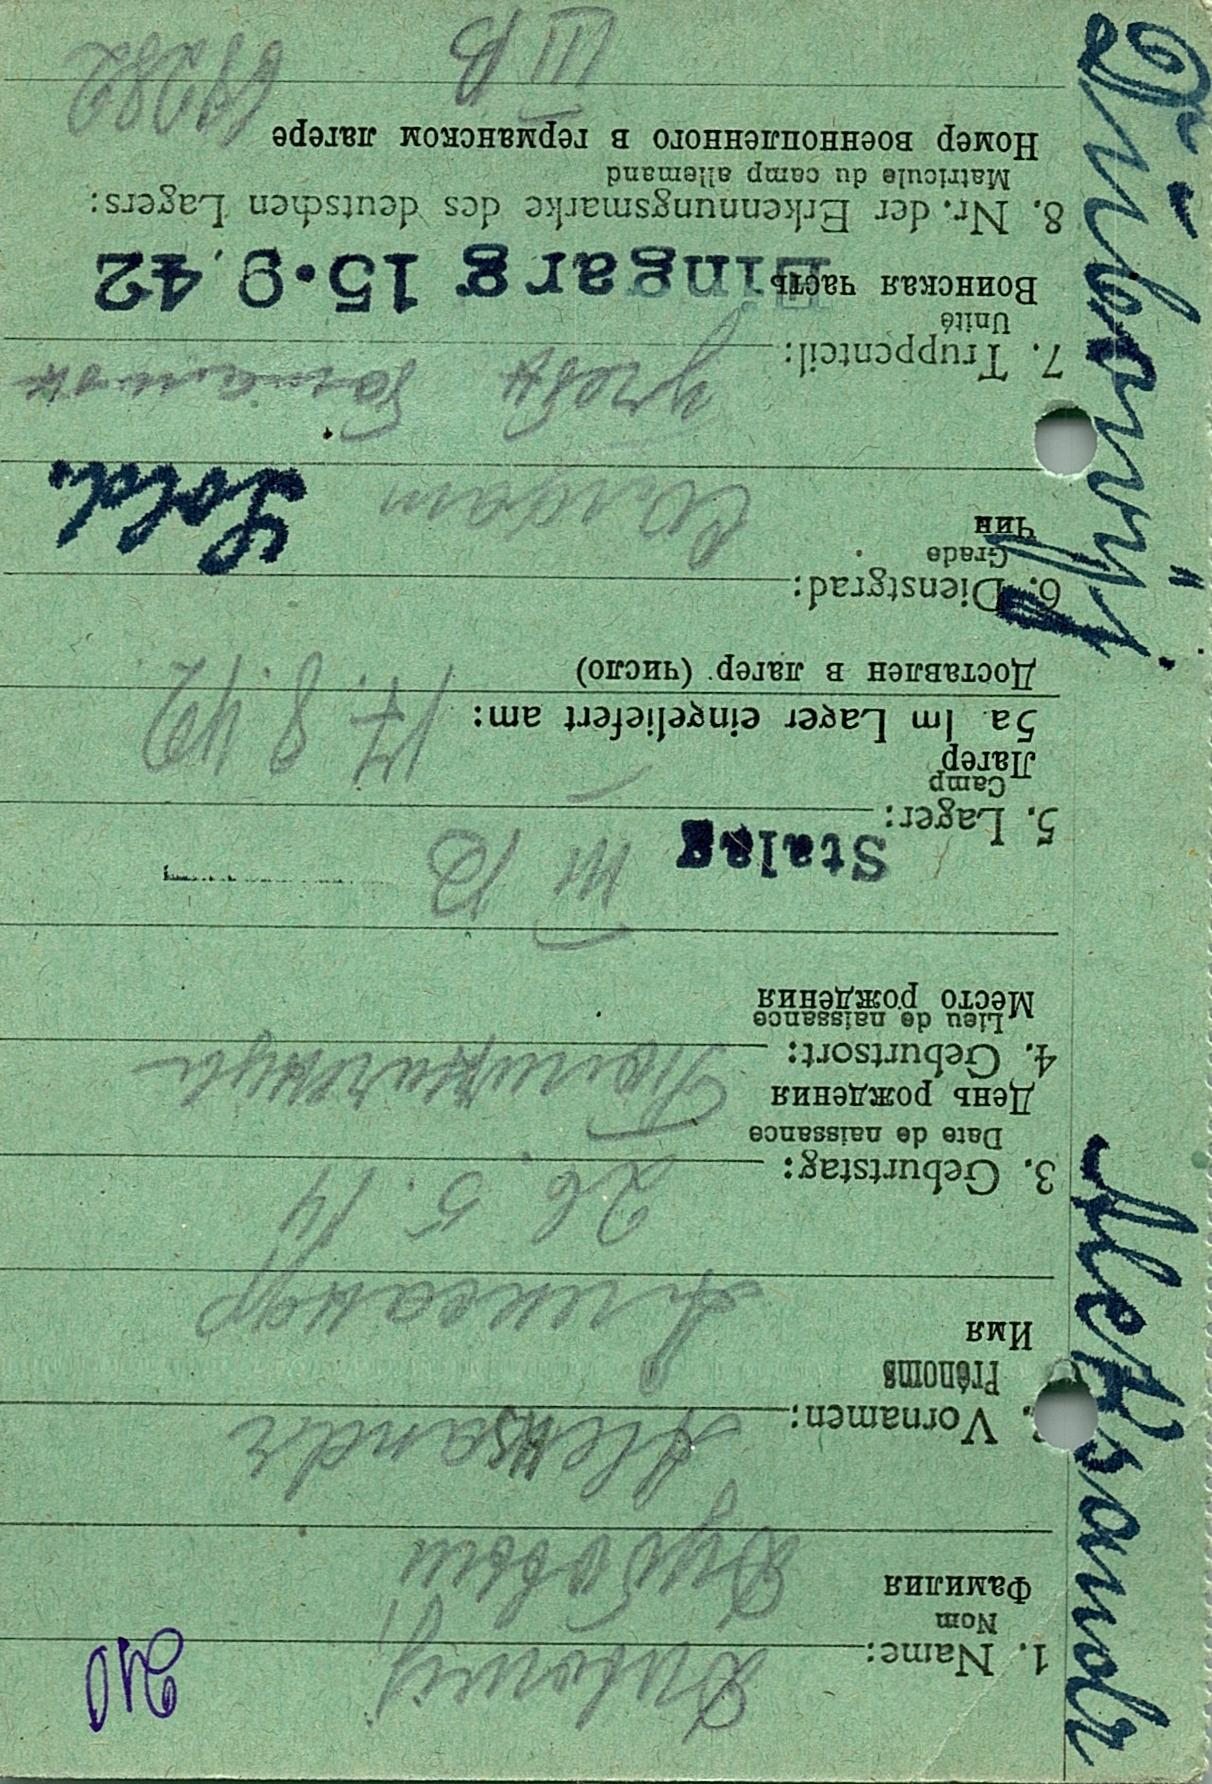 210
1. Name: Dubowij
Nom
Фамилия Дубовый
2. Vornamen: Aleksandr
Prénoms
Имя Александр
3. Geburtstag: 26. 5. 14
Date de naissance
День рождения
4. Geburtsort:
Lieu de naissance
Место рождения
5. Lager: Stalag III B
Camp
Лагер
5a. Im Lager eingeliefert am: 17. 8. 42
Доставлен в лагер (число)
6. Dienstgrad: Sold.
Grade
Чин Солдат
7. Truppenteil:
Unité
Воинская часть Eingang 15.9.42
8. Nr. der Erkennungsmarke des deutschen Lagers:
Matricule du camp allemand
Номер военнопленного в германском лагере
III B
Aleksandr